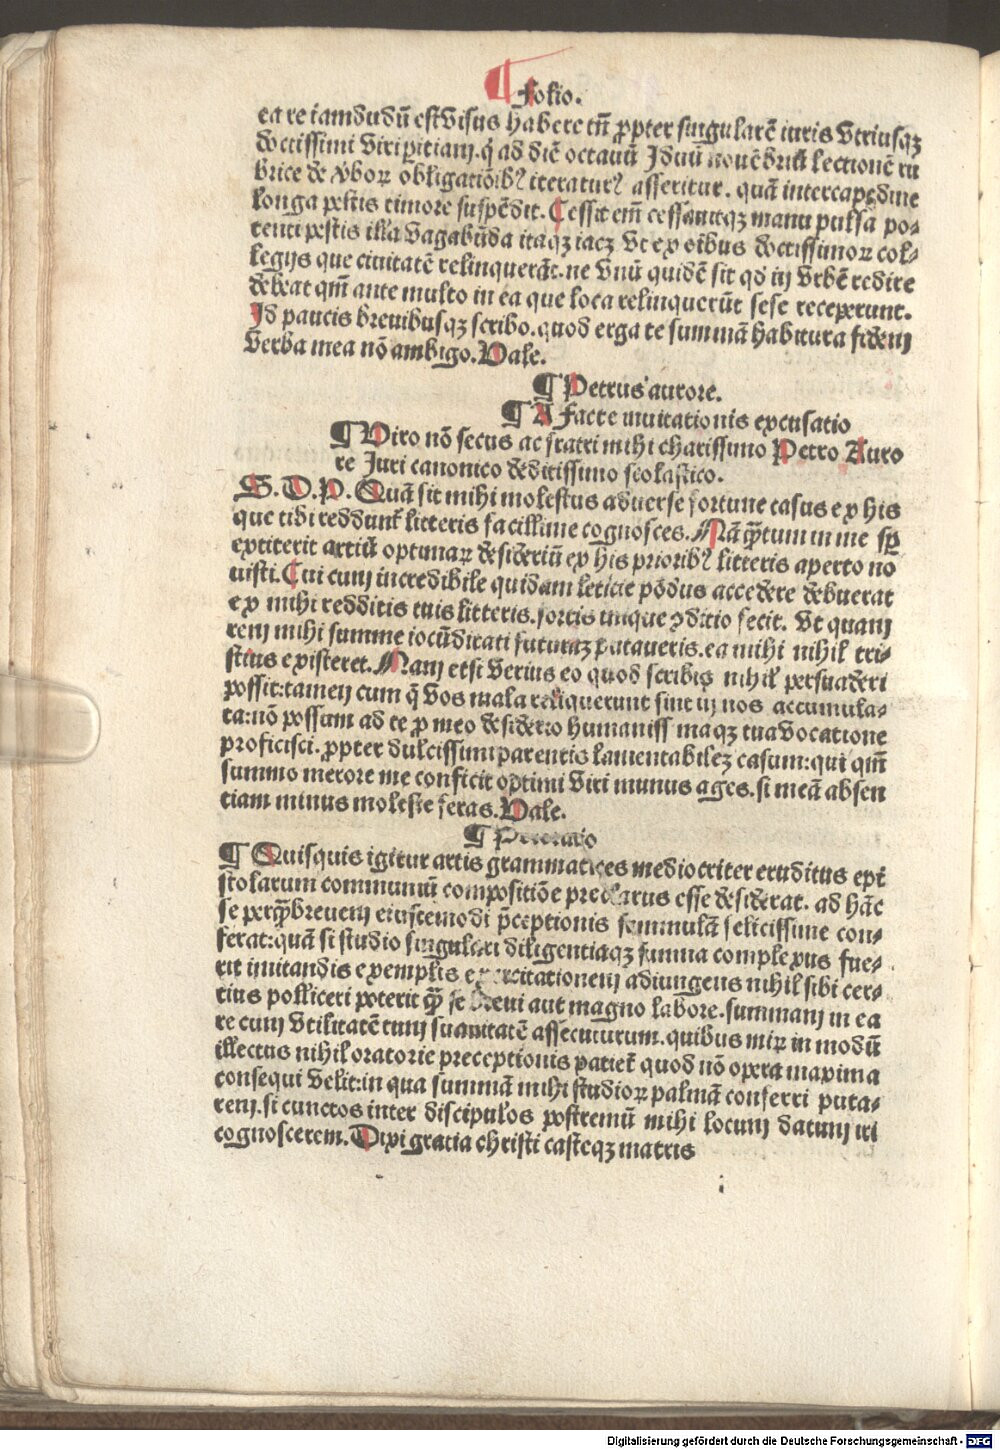 ¶ Folio.
ea re iamdudū est visus habere tn̄ ꝓpter singularē iuris vtriusqꝫ
doctissimi viri ꝑitiam. q̄ ad diē octauū Iduū nouēbriū lectionē ru
brice de v̓boꝝ obligatiōibꝰ iteraturꝰ asseritur. quā intercapedine
longa pestis timore suspēdit. Cessit em̄ cessauitqꝫ manu pulsa po⸗
tenti pestis illa vagabūda itaqꝫ iacꝫ vt ex oibus doctissimoꝝ col⸗
legijs que ciuitatē relinquerāt. ne vnū quidē sit qd̓ in vrbē redire
debeat qm̄ ante multo in ea que loca relinquerūt sese receperunt.
Id paucis breuibusqꝫ scribo. quod erga te summā habitura fidem
verba mea nō ambigo. Vale.
¶ Petrus aurore.
¶ A facete inuitationis excusatio
¶ Viro nō secus ac fratri mihi charissimo Petro Auro
re Iuri canonico deditissimo scolastico.
S. D. P. Quā sit mihi molestus aduerse fortune casus ex his
que tibi reddunt̄ litteris facillime cognosces. Nā qȝtum in me sꝑ
extiterit artiū optimaꝝ desideriū ex his prioribꝰ litteris aperto no
uisti. Cui cum incredibile quidam leticie pōdus accedere debuerat
ex mihi redditis tuis litteris. fortis inique ꝯditio fecit. vt quam
rem mihi summe iocūditati futuraꝫ putaueris. ea mihi nihil tri⸗
stius existeret. Nam etsi verius eo quod scribis nihil persuaderi
possit: tamen cum q̄ vos mala reliquerunt sint in nos accumula⸗
ta: nō possum ad te ꝓ meo desiderio humanissimaqꝫ tua vocatione
proficisci. ꝓpter dulcissimi parentis lamentabilē casum: qui qm̄
summo merore me conficit optimi viri munus ages. si meā absen
tiam minus moleste feras. Vale.
¶ Peroratio
¶ Quisquis igitur artis grammatices mediocriter eruditus epi
stolarum communiū compositiōe preclarus esse desiderat. ad hāc
se perqȝbreuem eiuscemodi p̄ceptionis summulā felicissime con⸗
ferat: quā si studio singulari diligentiaqꝫ summa complexus fue⸗
rit imitandis exemplis exercitationem adiungens nihil sibi cer⸗
tius polliceri poterit qȝ se breui aut magno labore. summam in ea
re cum vtilitatē tum suauitatē assecuturum. quibus miꝝ in modū
illectus nihil oratorie preceptionis patiet̄ quod nō opera maxima
consequi velit: in qua summā mihi studioꝝ palmā conferri puta⸗
rem. si cunctos inter discipulos postremū mihi locum datum iri
cognoscerem. Dixi gratia christi casteqꝫ matris
Digitalisierung gefördert durch die Deutsche Forschungsgemeinschaft - DFG